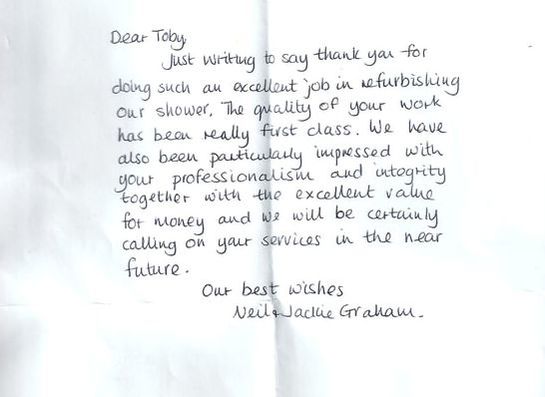 Dear Toby
Just writing to say thank you for
doing such an excellent job in refurbishing
our shower. The quality of your work
has been really first class. We have
also been particularly impressed with
your professionalism and integrity
together with the excellent value
for money and we will be certainly
calling on your services in the near
future.
Our best wishes
Neil & Jackie Graham.